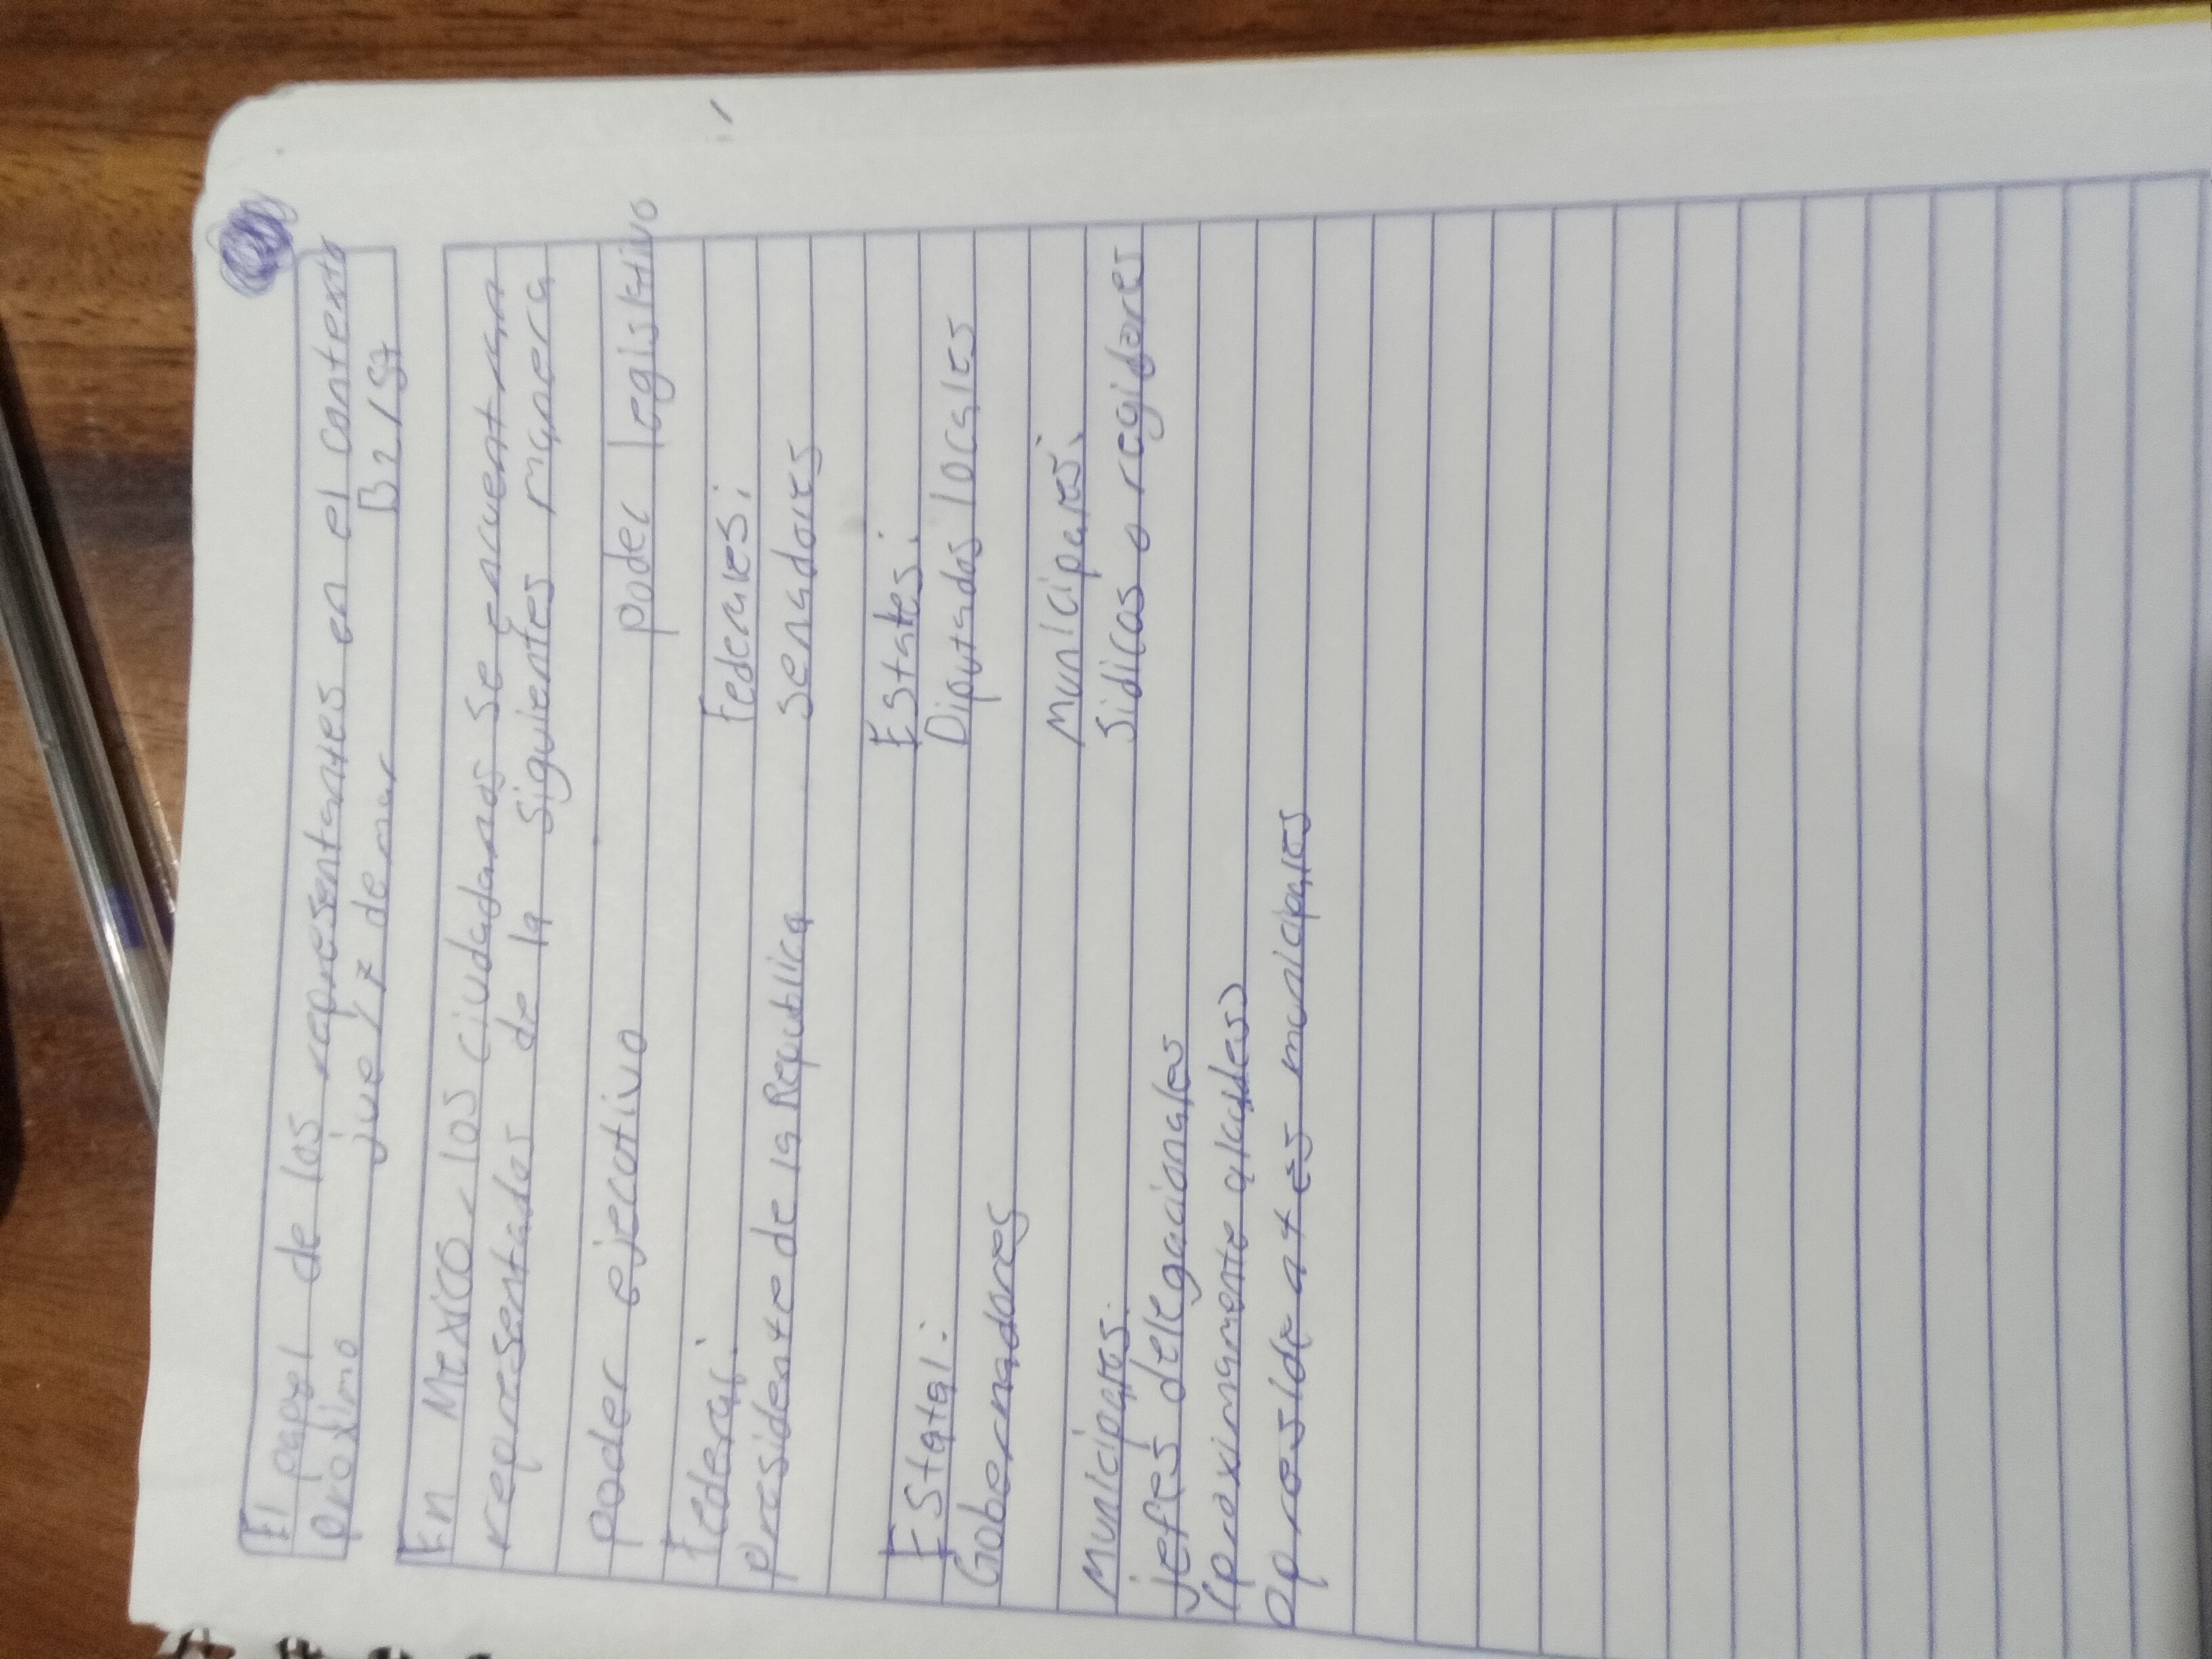 El papel de los representantes en el contexto
próximo jue / 7 de mar B2/S7
En Mexico, los ciudadanos se encuentran
representados de la siguientes manera
poder ejecutivo poder legisltivo
Federal: Federales:
presidente de la Republica senadores
Estatal: Estates:
Gobernadores Diputados locales
Municipales: Municipales:
jefes delegacionales Sidicos o regidores
(proximamente alcaldes)
O president es municipales